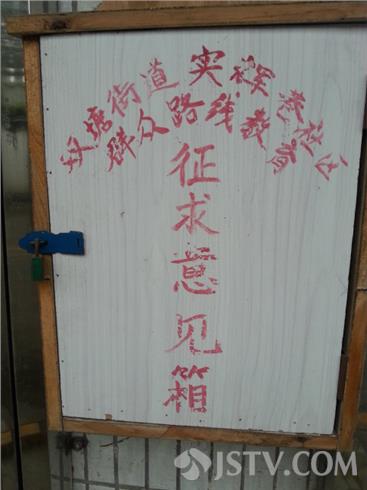 双塘街道实辉巷社区
群众路线教育
征求意见箱
JSTV.COM